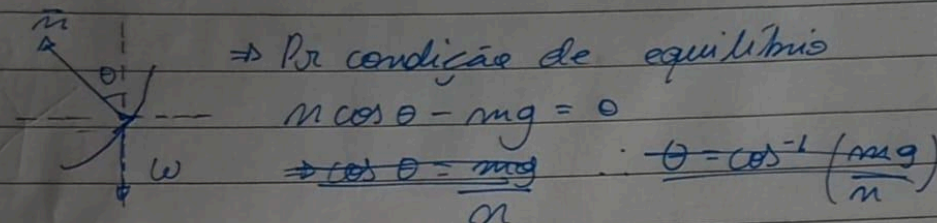 n̄
θ
w
⇒ Por condição de equilíbrio
n cos θ - mg = 0
⇒ cos θ = mg/n ∴ θ = cos⁻¹ (mg/n)